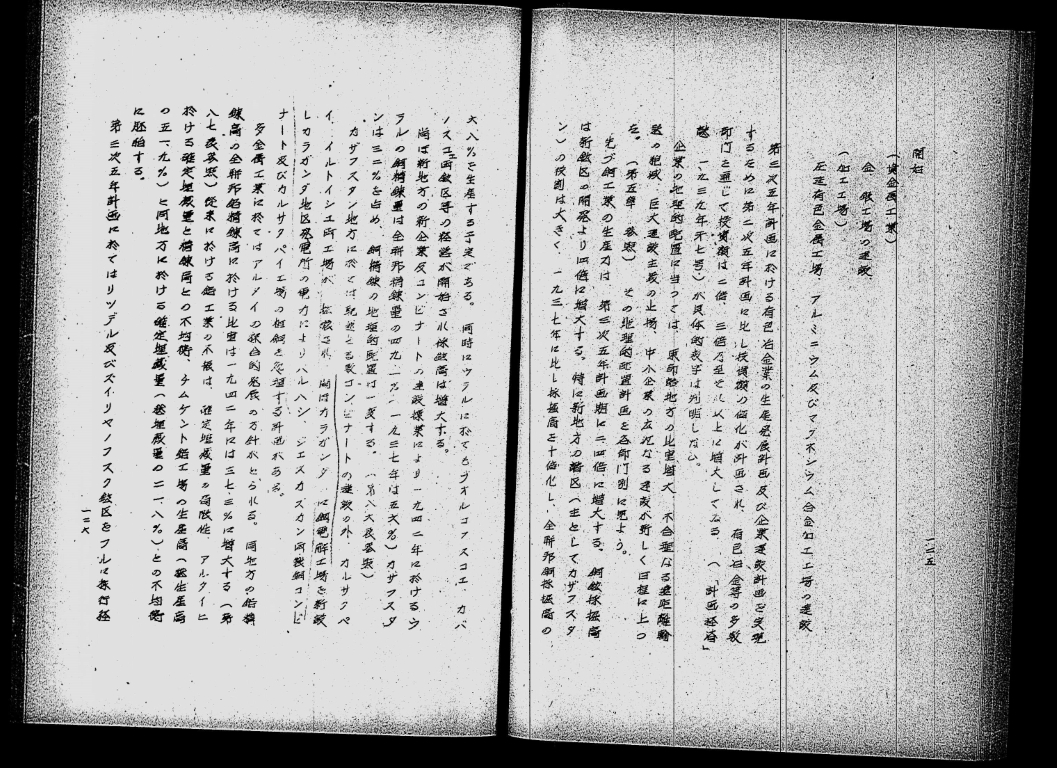 開始
(貴金属工業)
金、銀工場の建設
(加工工場)
圧延有色金属工場、アルミニウム及びマグネシウム合金加工工場の建設
第三次五年計画に於ける有色冶金業の生産発展計画及び企業建設計画を実現
するために第二次五年計画に比し投資額の倍化が計画され、有色冶金等の多数
部門を通じて投資額は二倍、三倍乃至それ以上に増大してゐる、(「計画経済」
誌、一九三九年第七号)が具体的数字は判明しない。
企業の地理的配置に当つては、東部地方の比重増大、不合理なる遠距離輸
送の絶滅、巨大建設主義の止揚、中小企業の広汎なる建設が新しく日程に上つ
た。(第五章 参照) その地理的配置計画を各部門別に見よう。
先づ銅工業の生産力は、第三次五年計画期に二四倍に増大する。銅鉱採掘高
は新鉱区の開発より四倍に増大する。特に新地方の鉱区(主としてカザフスタ
ン)の役割は大きく、一九三七年に比し採掘高を十倍化し、全聯邦銅採掘高の
一二五
大八%を生産する予定である。同時にウラルに於てもヴオルコフスコエ、カバ
ノスコエ両鉱区等の経営が開始され採鉱高は増大する。
尚ほ新地方の新企業及コンビナートの建設操業により一九四二年に於けるウ
ラルの銅精錬量は全聯邦精錬量の四九、一%(一九三七年は五六%)カザフスタ
ンは三二%を占め、銅精錬の地理的配置は一変する。(第八六表参照)
カザフスタン地方に於ては既述せる数コンビナートの建設の外、カルサクペ
イ、イルトイシ工両工場が拡張され、尚ほカラガンダ に銅電解工場を新設
しカラガンダ地区発電所の電力によりバルハシ、ジエスカズガン両製銅コンビ
ナート及びカルサクパイ工場の粗銅を処理する計画がある。
多金属工業に於てはアルタイの綜合的発展の方針がとられる。同地方の鉛精
錬高の全聯邦鉛精錬高に於ける比重は一九四二年には三七、三%に増大する(第
八七表参照)従来に於ける鉛工業の不振は、確定埋蔵量の局限性、アルタイに
於ける確定埋蔵量と精錬高との不均衡、チムケント鉛工場の生産高(総生産高
の五一、九%)と同地方に於ける確定埋蔵量(総埋蔵量の二一、八%)との不均衡
に胚胎する。
第三次五年計画に於てはリツデル及びズイリヤノフスク鉱区をフルに採行経
一二六